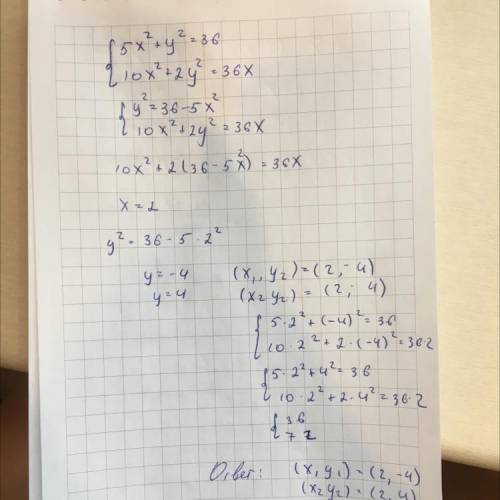 5x² + y² = 36
10x² + 2y² = 36x
y² = 36 - 5x²
10x² + 2y² = 36x
10x² + 2(36 - 5x²) = 36x
x = 2
y² = 36 - 5 · 2²
y = -4
y = 4
(x₁, y₂) = (2, -4)
(x₂ y₂) = (2; 4)
5 · 2² + (-4)² = 36
10 · 2² + 2 · (-4)² = 36 · 2
5 · 2² + 4² = 36
10 · 2² + 2 · 4² = 36 · 2
36
72
Ответ: (x, y₁) = (2, -4)
(x₂ y₂) = (2, 4)